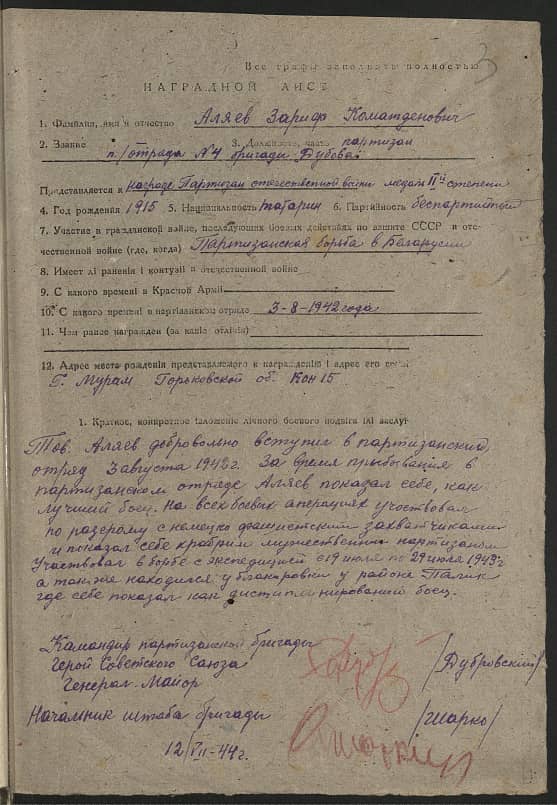 3
Все графы заполнять полностью
НАГРАДНОЙ ЛИСТ
1. Фамилия, имя и отчество Аляев Зариф
2. Звание 3. Должность, часть партизан
п/отряда №4 бригады Дубова
Представляется к награде Партизан отечественной войны медаль II й степени
4. Год рождения 1915 5. Национальность татарин 6. Партийность беспартийный
7. Участие в гражданской войне, последующих боевых действиях по защите СССР и оте-
чественной войне (где, когда) Партизанская борьба в Беларусии
8. Имеет лі раненія і контузіі в отечественной войне
9. С какого времени в Красной Армии
10. С какого времени в партізанском отряде 3-8-1942 года
11. Чем ранее награжден (за какіе отлічія)
12. Адрес место рожденія представляемого к награжденію і адрес его семьі
Г. Мурам Горьковской об.
1. Краткое, конкретное ізложеніе лічного боевого подвіга ілі заслуг
Тов. Аляев добровольно вступил в партизанский
отряд 3 августа 1942 г. За время прыбывания в
партизанском отряде Аляев показал себе, как
лучший боец. На всех боевых аперациях учоствовал
по разгрому с немецко фашистским захватчиками
и показал себе храбрим мужественим партизаном
Участвовал в борбе с экспедицией с 19 июля по 29 июля 1943 г
а также находился у блакировки у районе Палик
где себе показал как дистиплинированой боец.
Камандир партизанской бригады
Герой Советского Союза
Генерал-Майор /Дубровский/
Начальник штаба бригады /Шарко/
12/VII-44 г.